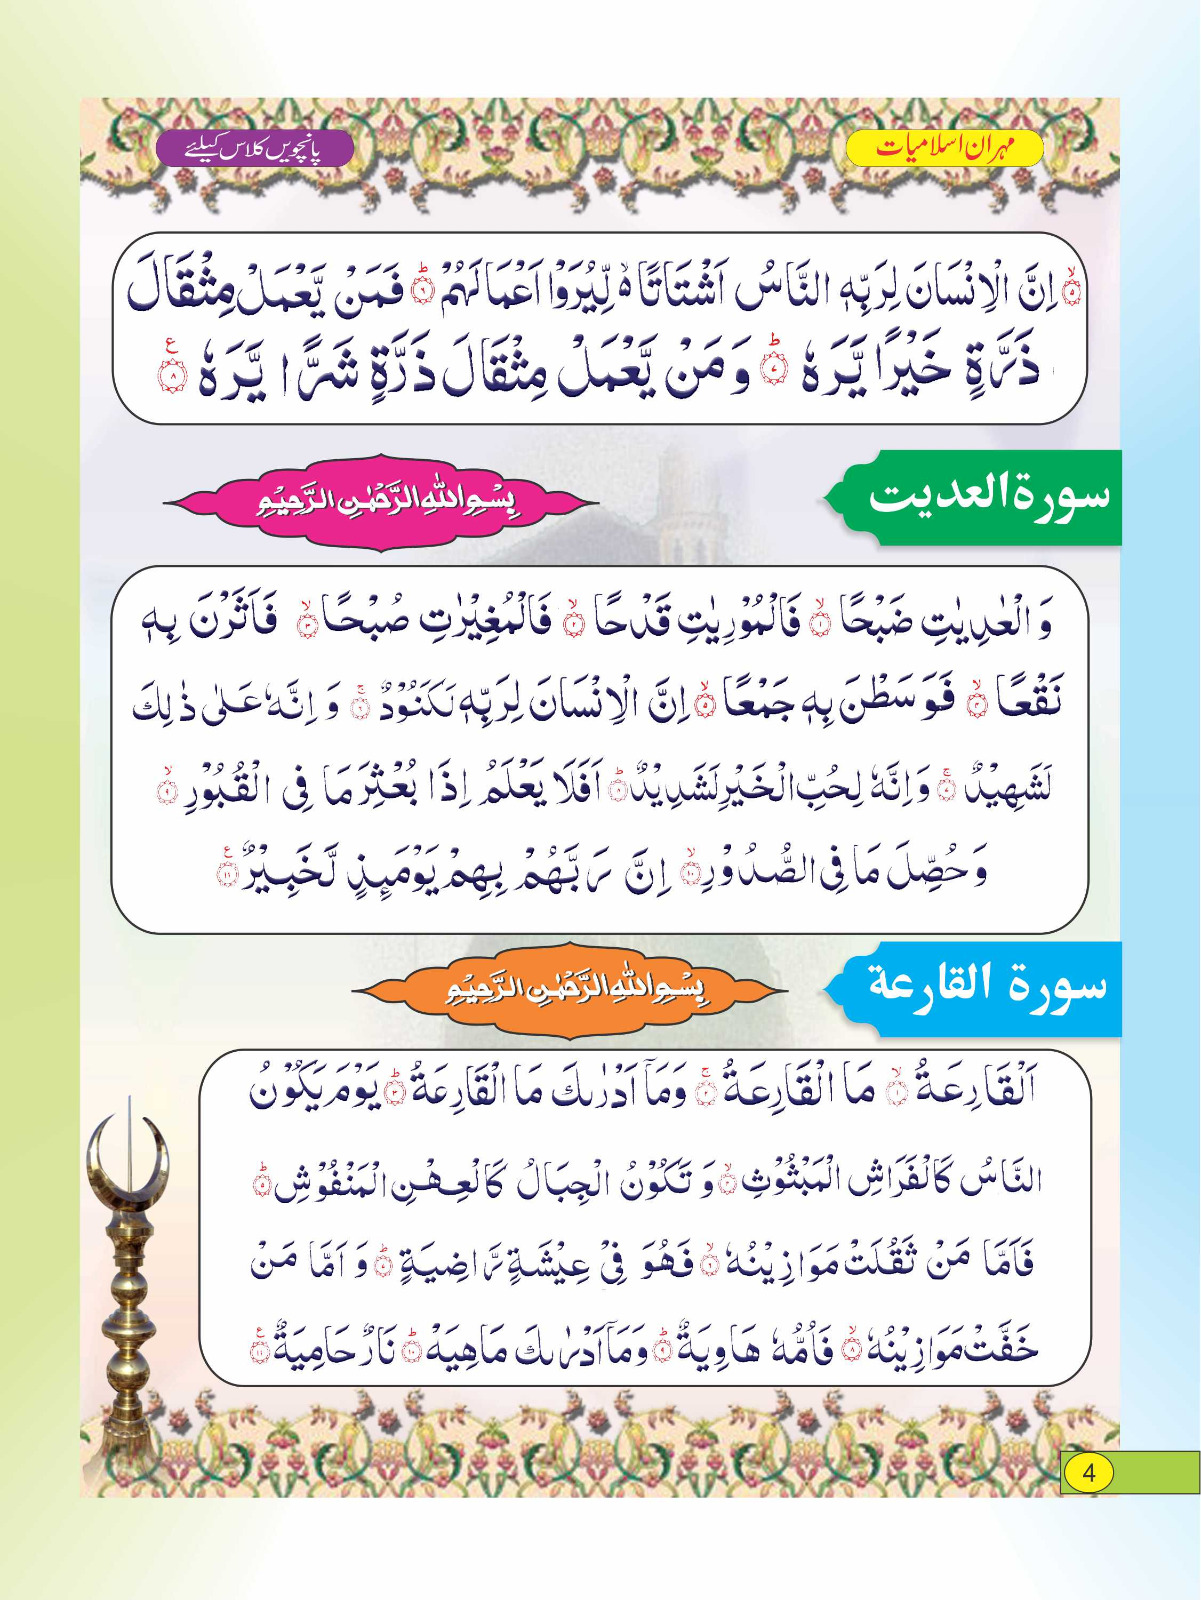 مہران اسلامیات
پانچویں کلاس کیلئے
۵ۙ اِنَّ الْاِنْسَانَ لِرَبِّهٖ النَّاسُ اَشْتَاتًا ۙ لِّيُرَوْا اَعْمَالَهُمْ ۶ؕ فَمَنْ يَّعْمَلْ مِثْقَالَ
ذَرَّةٍ خَيْرًا يَّرَهٗ ۷ؕ وَمَنْ يَّعْمَلْ مِثْقَالَ ذَرَّةٍ شَرًّا يَّرَهٗ ۸ ع
سورة العديت
بِسْمِ اللهِ الرَّحْمٰنِ الرَّحِيْمِ
وَالْعٰدِيٰتِ ضَبْحًا ۱ۙ فَالْمُوْرِيٰتِ قَدْحًا ۲ۙ فَالْمُغِيْرٰتِ صُبْحًا ۳ۙ فَاَثَرْنَ بِهٖ
نَقْعًا ۴ۙ فَوَسَطْنَ بِهٖ جَمْعًا ۵ۙ اِنَّ الْاِنْسَانَ لِرَبِّهٖ لَكَنُوْدٌ ۶ۚ وَاِنَّهٗ عَلٰى ذٰلِكَ
لَشَهِيْدٌ ۷ۚ وَاِنَّهٗ لِحُبِّ الْخَيْرِ لَشَدِيْدٌ ۸ؕ اَفَلَا يَعْلَمُ اِذَا بُعْثِرَ مَا فِى الْقُبُوْرِ ۹ۙ
وَحُصِّلَ مَا فِى الصُّدُوْرِ ۱۰ۙ اِنَّ رَبَّهُمْ بِهِمْ يَوْمَئِذٍ لَّخَبِيْرٌ ۱۱ ع
سورة القارعة
بِسْمِ اللهِ الرَّحْمٰنِ الرَّحِيْمِ
اَلْقَارِعَةُ ۱ۙ مَا الْقَارِعَةُ ۲ۚ وَمَاۤ اَدْرٰىكَ مَا الْقَارِعَةُ ۳ؕ يَوْمَ يَكُوْنُ
النَّاسُ كَالْفَرَاشِ الْمَبْثُوْثِ ۴ۙ وَتَكُوْنُ الْجِبَالُ كَالْعِهْنِ الْمَنْفُوْشِ ۵ؕ
فَاَمَّا مَنْ ثَقُلَتْ مَوَازِيْنُهٗ ۶ۙ فَهُوَ فِىْ عِيْشَةٍ رَّاضِيَةٍ ۷ؕ وَاَمَّا مَنْ
خَفَّتْ مَوَازِيْنُهٗ ۸ۙ فَاُمُّهٗ هَاوِيَةٌ ۹ؕ وَمَاۤ اَدْرٰىكَ مَاهِيَهْ ۱۰ؕ نَارٌ حَامِيَةٌ ۱۱ ع
4